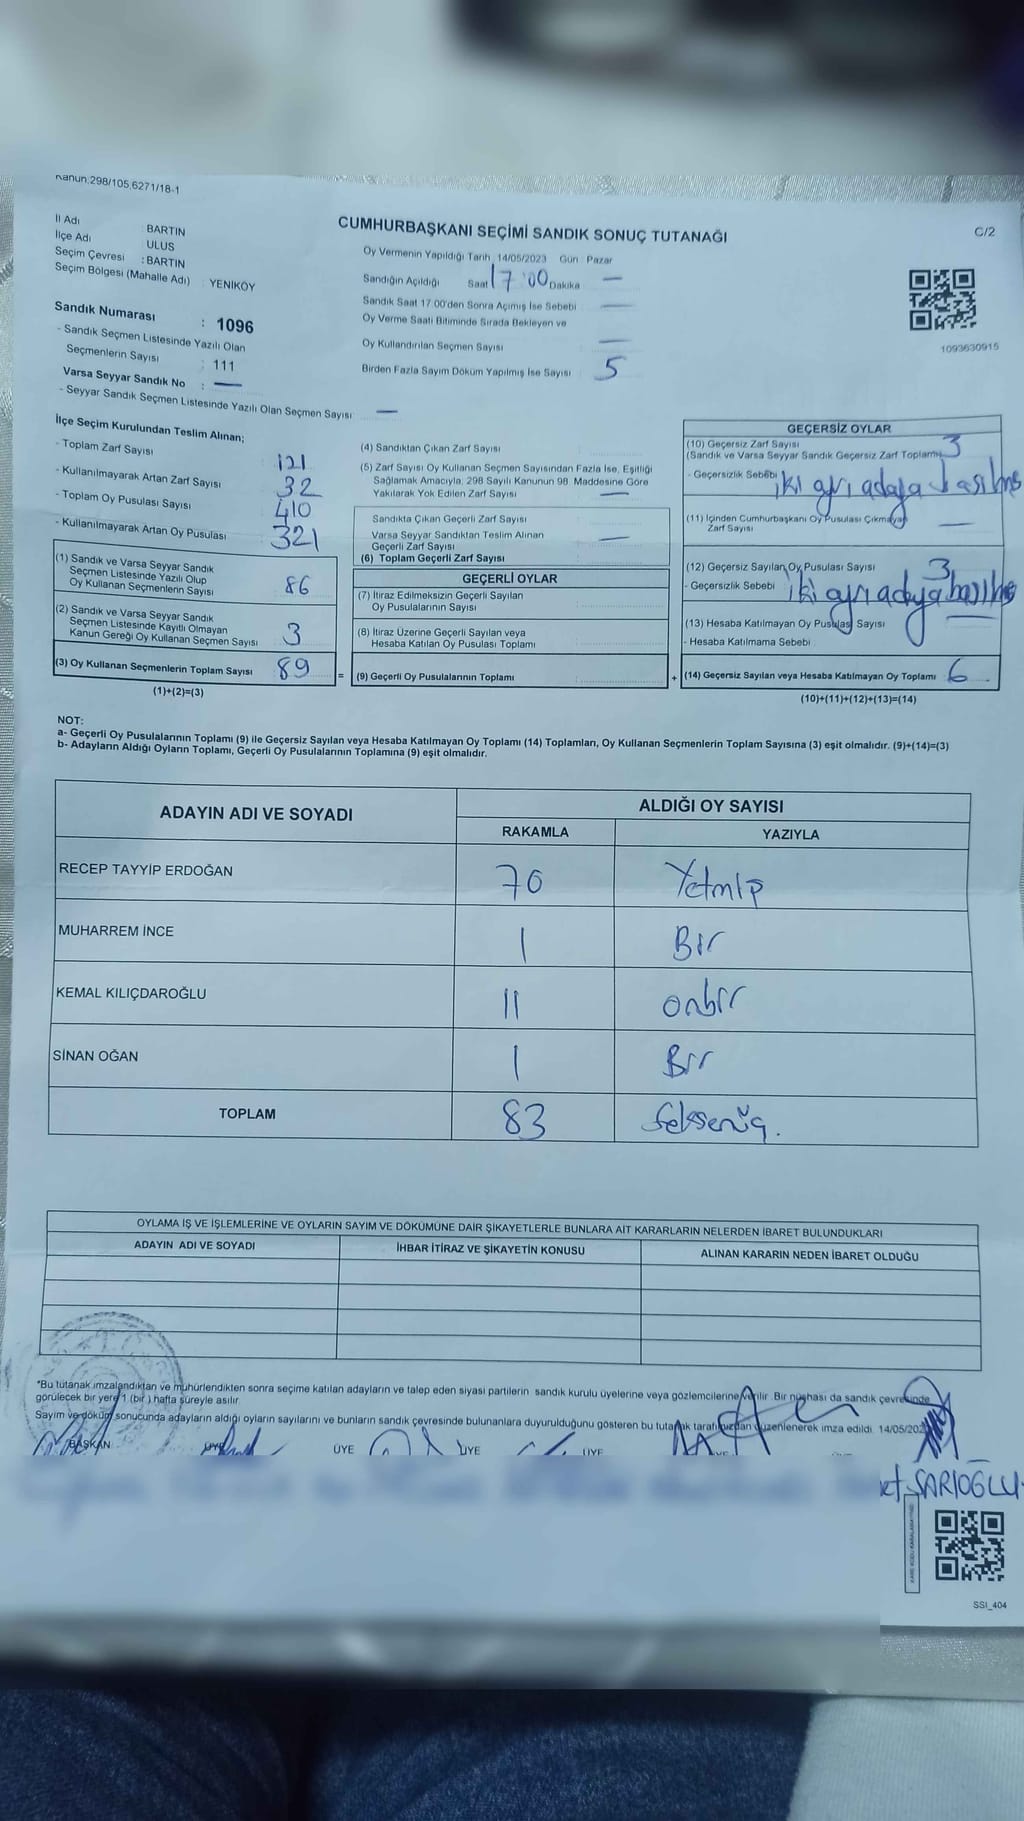 Kanun:298/105,6271/18-1
İl Adı : BARTIN
İlçe Adı : ULUS
Seçim Çevresi : BARTIN
Seçim Bölgesi (Mahalle Adı) : YENİKÖY
CUMHURBAŞKANI SEÇİMİ SANDIK SONUÇ TUTANAĞI
C/2
Oy Vermenin Yapıldığı Tarih 14/05/2023 Gün : Pazar
Sandığın Açıldığı Saat 17:00 Dakika —
Sandık Saat 17.00'den Sonra Açımış İse Sebebi —
Oy Verme Saati Bitiminde Sırada Bekleyen ve
Oy Kullandırılan Seçmen Sayısı —
Birden Fazla Sayım Döküm Yapılmış İse Sayısı 5
1093630915
Sandık Numarası : 1096
- Sandık Seçmen Listesinde Yazılı Olan
Seçmenlerin Sayısı : 111
Varsa Seyyar Sandık No : —
- Seyyar Sandık Seçmen Listesinde Yazılı Olan Seçmen Sayısı —
İlçe Seçim Kurulundan Teslim Alınan;
- Toplam Zarf Sayısı 121
- Kullanılmayarak Artan Zarf Sayısı 32
- Toplam Oy Pusulası Sayısı 410
- Kullanılmayarak Artan Oy Pusulası 321
(1) Sandık ve Varsa Seyyar Sandık
Seçmen Listesinde Yazılı Olup
Oy Kullanan Seçmenlerin Sayısı 86
(2) Sandık ve Varsa Seyyar Sandık
Seçmen Listesinde Kayıtlı Olmayan
Kanun Gereği Oy Kullanan Seçmen Sayısı 3
(3) Oy Kullanan Seçmenlerin Toplam Sayısı 89
(1)+(2)=(3)
(4) Sandıktan Çıkan Zarf Sayısı
(5) Zarf Sayısı Oy Kullanan Seçmen Sayısından Fazla İse, Eşitliği
Sağlamak Amacıyla, 298 Sayılı Kanunun 98. Maddesine Göre
Yakılarak Yok Edilen Zarf Sayısı —
Sandıkta Çıkan Geçerli Zarf Sayısı
Varsa Seyyar Sandıktan Teslim Alınan
Geçerli Zarf Sayısı —
(6) Toplam Geçerli Zarf Sayısı
GEÇERLİ OYLAR
(7) İtiraz Edilmeksizin Geçerli Sayılan
Oy Pusulalarının Sayısı
(8) İtiraz Üzerine Geçerli Sayılan veya
Hesaba Katılan Oy Pusulası Toplamı
= (9) Geçerli Oy Pusulalarının Toplamı
GEÇERSİZ OYLAR
(10) Geçersiz Zarf Sayısı
(Sandık ve Varsa Seyyar Sandık Geçersiz Zarf Toplamı) 3
- Geçersizlik Sebebi iki ayrı adaya basılmış
(11) İçinden Cumhurbaşkanı Oy Pusulası Çıkmayan
Zarf Sayısı —
(12) Geçersiz Sayılan Oy Pusulası Sayısı 3
- Geçersizlik Sebebi iki ayrı adaya basılmış
(13) Hesaba Katılmayan Oy Pusulası Sayısı —
- Hesaba Katılmama Sebebi
+ (14) Geçersiz Sayılan veya Hesaba Katılmayan Oy Toplamı 6
(10)+(11)+(12)+(13)=(14)
NOT:
a- Geçerli Oy Pusulalarının Toplamı (9) ile Geçersiz Sayılan veya Hesaba Katılmayan Oy Toplamı (14) Toplamları, Oy Kullanan Seçmenlerin Toplam Sayısına (3) eşit olmalıdır. (9)+(14)=(3)
b- Adayların Aldığı Oyların Toplamı, Geçerli Oy Pusulalarının Toplamına (9) eşit olmalıdır.
ADAYIN ADI VE SOYADI
ALDIĞI OY SAYISI
RAKAMLA YAZIYLA
RECEP TAYYİP ERDOĞAN 70 Yetmiş
MUHARREM İNCE 1 Bir
KEMAL KILIÇDAROĞLU 11 onbir
SİNAN OĞAN 1 Bir
TOPLAM 83 Seksenüç.
OYLAMA İŞ VE İŞLEMLERİNE VE OYLARIN SAYIM VE DÖKÜMÜNE DAİR ŞİKAYETLERLE BUNLARA AİT KARARLARIN NELERDEN İBARET BULUNDUKLARI
ADAYIN ADI VE SOYADI İHBAR İTİRAZ VE ŞİKAYETİN KONUSU ALINAN KARARIN NEDEN İBARET OLDUĞU
*Bu tutanak imzalandıktan ve mühürlendikten sonra seçime katılan adayların ve talep eden siyasi partilerin sandık kurulu üyelerine veya gözlemcilerine verilir. Bir nüshası da sandık çevresinde
görülecek bir yere 1 (bir ) hafta süreyle asılır
Sayım ve döküm sonucunda adayların aldığı oyların sayılarını ve bunların sandık çevresinde bulunanlara duyurulduğunu gösteren bu tutanak tarafımızdan düzenlenerek imza edildi. 14/05/2023
BAŞKAN ÜYE ÜYE ÜYE ÜYE
SARIOĞLU
SSI_404